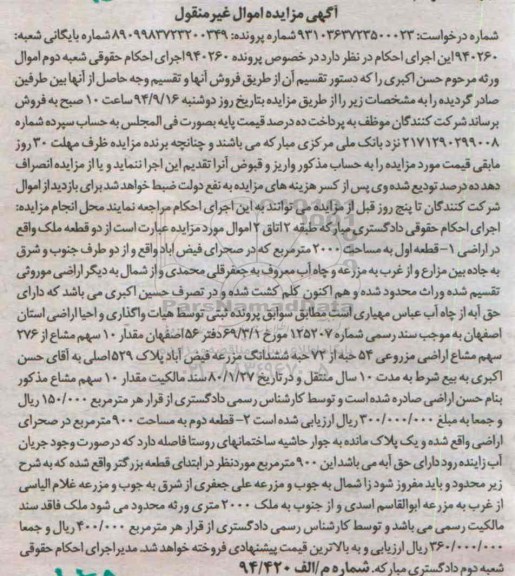 آگهی مزایده اموال غیر منقول
شماره درخواست: ۹۳۱۰۳۶۳۷۲۳۵۰۰۰۲۳ شماره پرونده: ۸۹۰۹۹۸۳۷۲۳۲۰۰۳۴۹ شماره بایگانی شعبه:
۹۴۰۲۶۰ این اجرای احکام در نظر دارد در خصوص پرونده ۹۴۰۲۶۰ اجرای احکام حقوقی شعبه دوم اموال
ورثه مرحوم حسن اکبری را که دستور تقسیم آن از طریق فروش آنها و تقسیم وجه حاصل از آنها بین طرفین
صادر گردیده را به مشخصات زیر را از طریق مزایده بتاریخ روز دوشنبه ۹۴/۹/۱۶ ساعت ۱۰ صبح به فروش
برساند شرکت کنندگان موظف به پرداخت ده درصد قیمت پایه بصورت فی المجلس به حساب سپرده شماره
۲۱۷۱۲۹۰۲۹۹۰۰۸ نزد بانک ملی مرکزی مبارکه می باشند و چنانچه برنده مزایده ظرف مهلت ۳۰ روز
مابقی قیمت مورد مزایده را به حساب مذکور واریز و قبوض آنرا تقدیم این اجرا ننماید و یا از مزایده انصراف
دهد ده درصد تودیع شده وی پس از کسر هزینه های مزایده به نفع دولت ضبط خواهد شد برای بازدید از اموال
شرکت کنندگان تا پنج روز قبل از مزایده می توانند به این اجرای احکام مراجعه نمایند محل انجام مزایده:
اجرای احکام حقوقی دادگستری مبارکه طبقه ۲ اتاق ۲ اموال مورد مزایده عبارت است از دو قطعه ملک واقع
در اراضی ۱- قطعه اول به مساحت ۲۰۰۰ مترمربع که در صحرای فیض آباد واقع و از دو طرف جنوب و شرق
به جاده بین مزارع و از غرب به مزرعه و چاه آب معروف به جعفرقلی محمدی و از شمال به دیگر اراضی موروثی
تقسیم شده وراث محدود شده و هم اکنون کلم کشت شده و در تصرف حسین اکبری می باشد که دارای
حق آبه از چاه آب عباس مهیاری است مطابق سوابق پرونده ثبتی توسط هیات واگذاری و احیا اراضی استان
اصفهان به موجب سند رسمی شماره ۱۲۵۲۰۷ مورخ ۶۹/۳/۱ دفتر ۵۶ اصفهان مقدار ۱۰ سهم مشاع از ۲۷۶
سهم مشاع اراضی مزروعی ۵۴ حبه از ۷۲ حبه ششدانگ مزرعه فیض آباد پلاک ۵۲۹ اصلی به آقای حسن
اکبری به بیع شرط به مدت ۱۰ سال منتقل و در تاریخ ۸۰/۱/۲۷ سند مالکیت مقدار ۱۰ سهم مشاع مذکور
بنام حسن اراضی صادره شده است و توسط کارشناس رسمی دادگستری از قرار هر مترمربع ۱۵۰/۰۰۰ ریال
و جمعا به مبلغ ۳۰۰/۰۰۰/۰۰۰ ریال ارزیابی شده است ۲- قطعه دوم به مساحت ۹۰۰ مترمربع در صحرای
اراضی واقع شده و یک پلاک مانده به جوار حاشیه ساختمانهای روستا فاصله دارد که درصورت وجود جریان
آب زاینده رود دارای حق آبه می باشد این ۹۰۰ مترمربع موردنظر در ابتدای قطعه بزرگتر واقع شده که به شرح
زیر محدود و باید مفروز شود زا شمال به جوب و مزرعه علی جعفری از شرق به جوب و مزرعه غلام الیاسی
از غرب به مزرعه ابوالقاسم اسدی و از جنوب به ملک ۲۰۰۰ متری ورثه محدود می شود ملک فاقد سند
مالکیت رسمی می باشد و توسط کارشناس رسمی دادگستری از قرار هر مترمربع ۴۰۰/۰۰۰ ریال و جمعا
۳۶۰/۰۰۰/۰۰۰ ریال ارزیابی و به بالاترین قیمت پیشنهادی فروخته خواهد شد. مدیر اجرای احکام حقوقی
شعبه دوم دادگستری مبارکه. شماره م/الف ۹۴/۴۲۰